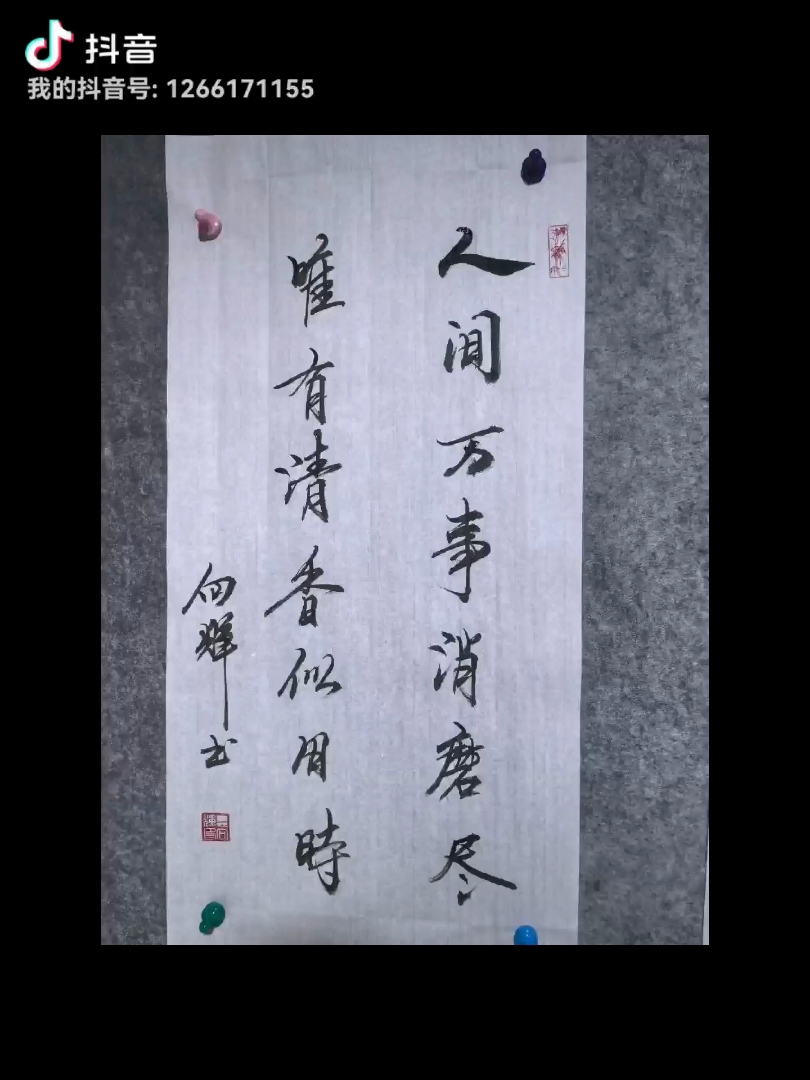 抖音
我的抖音号: 1266171155
人间万事消磨尽
唯有清香似旧時
向輝书